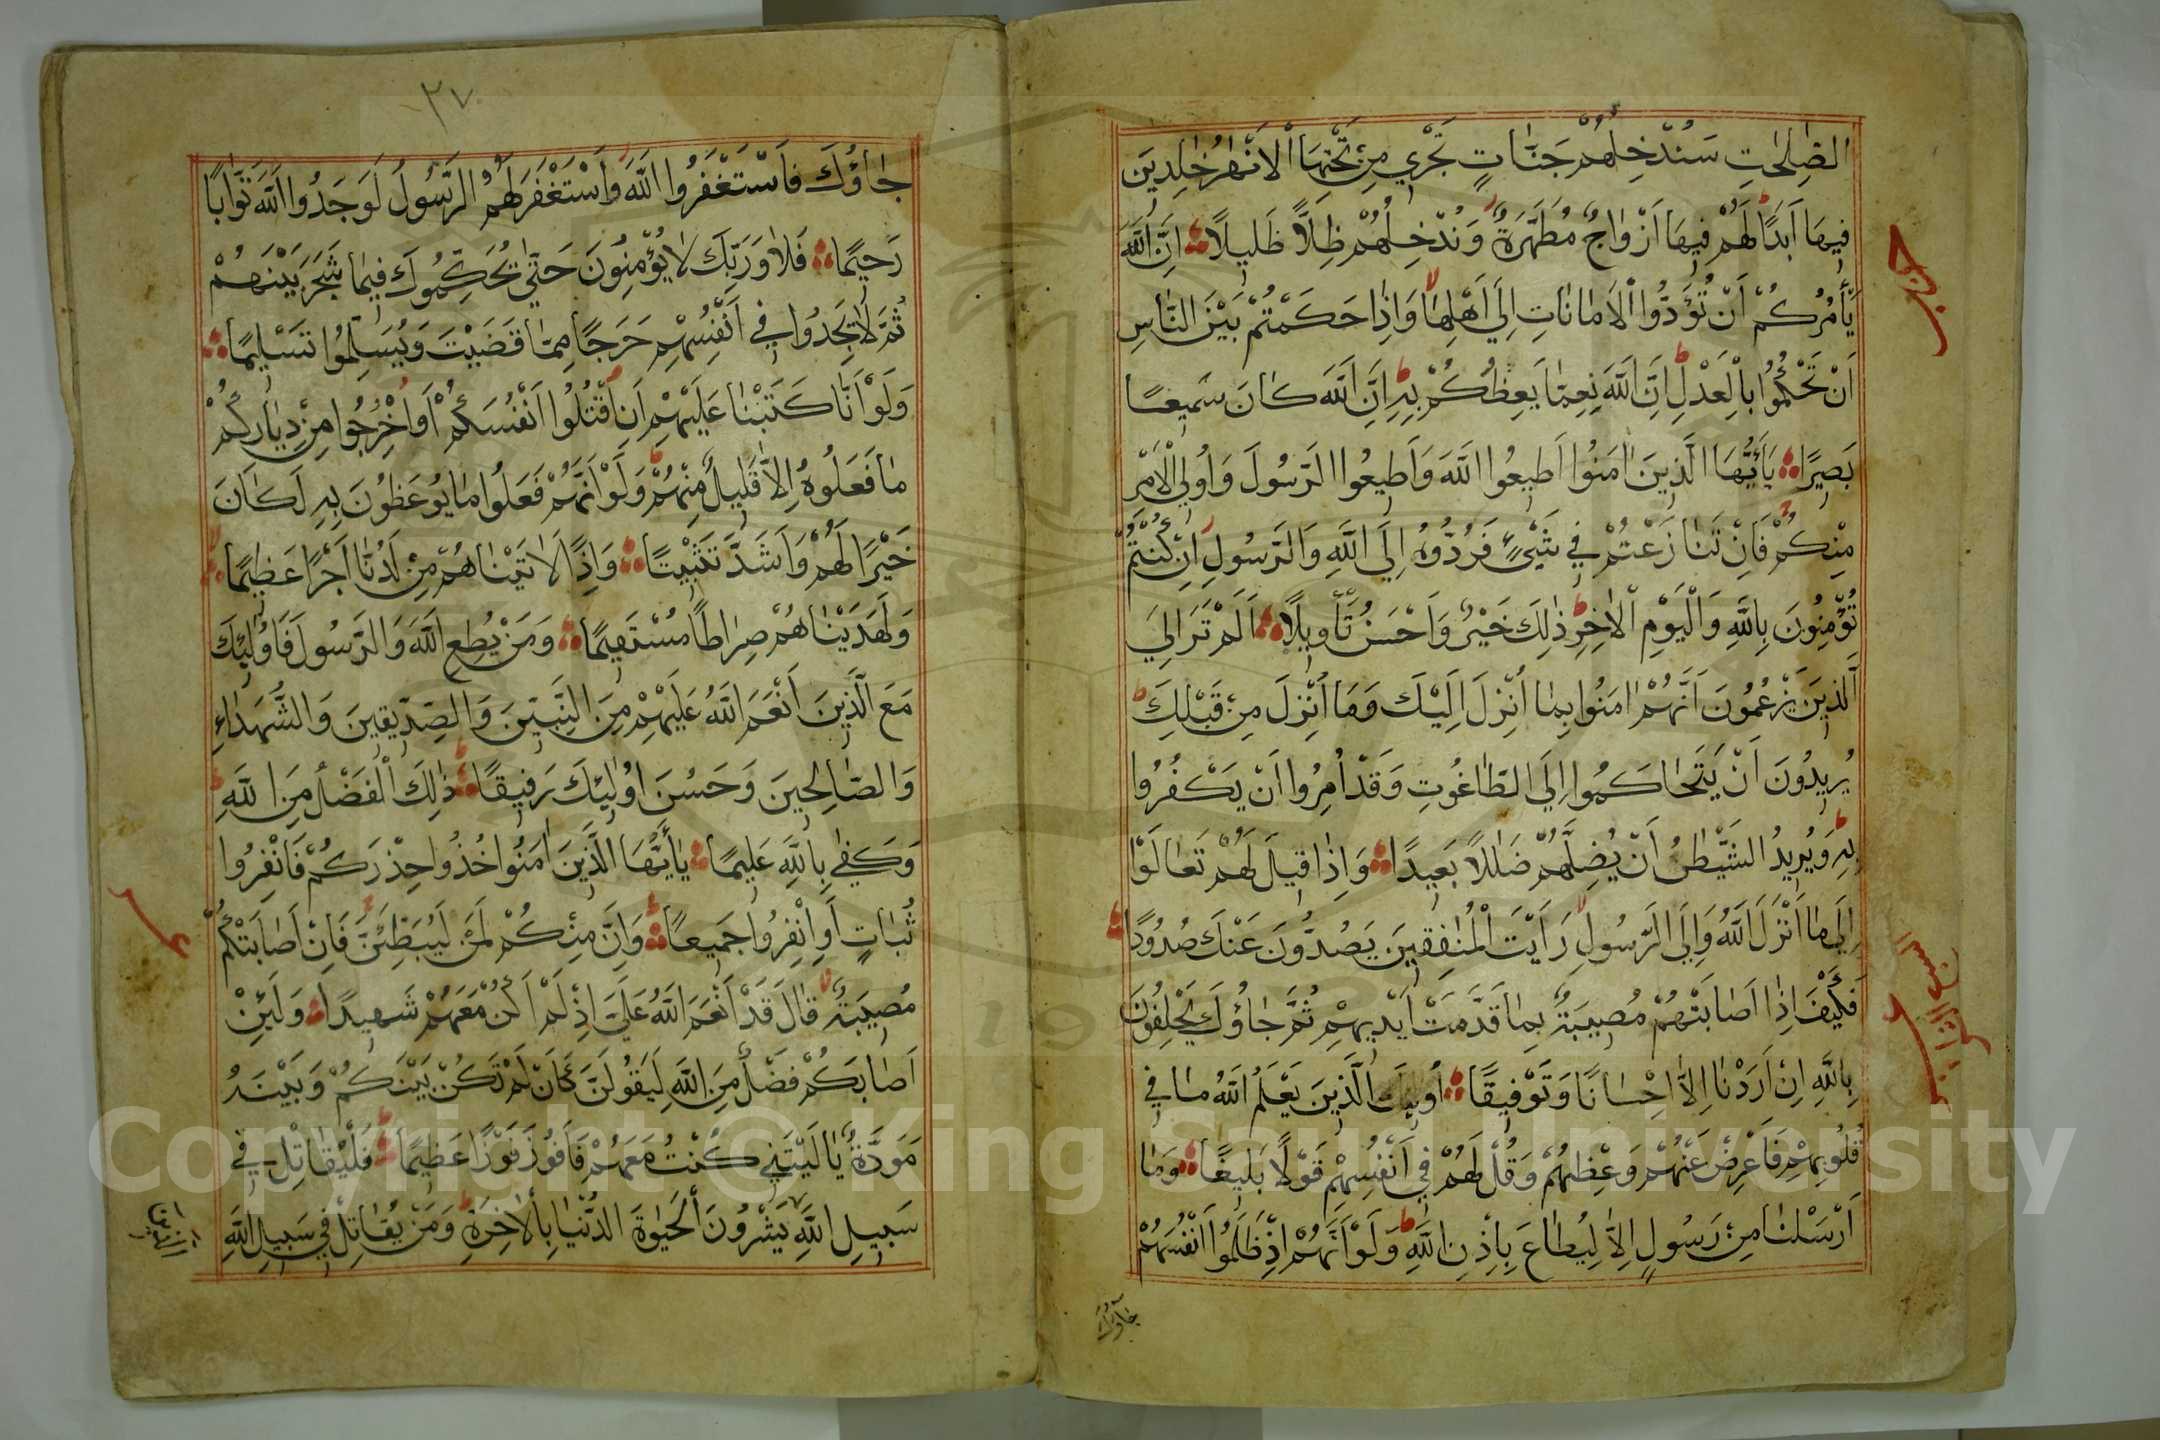 الصّٰلِحٰتِ سَنُدْخِلُهُمْ جَنَّاتٍ تَجْرِي مِنْ تَحْتِهَا الْاَنْهٰرُ خٰلِدِينَ
فِيهَا اَبَدًا لَهُمْ فِيهَا اَزْوَاجٌ مُطَهَّرَةٌ وَنُدْخِلُهُمْ ظِلًّا ظَلِيلًا اِنَّ اللّٰهَ
يَأْمُرُكُمْ اَنْ تُؤَدُّوا الْاَمَانَاتِ اِلٰي اَهْلِهَا وَاِذَا حَكَمْتُمْ بَيْنَ النَّاسِ
اَنْ تَحْكُمُوا بِالْعَدْلِ اِنَّ اللّٰهَ نِعِمَّا يَعِظُكُمْ بِهِ اِنَّ اللّٰهَ كَانَ سَمِيعًا
بَصِيرًا يَاَيُّهَا الَّذِينَ اٰمَنُوا اَطِيعُوا اللّٰهَ وَاَطِيعُوا الرَّسُولَ وَاُولِي الْاَمْرِ
مِنْكُمْ فَاِنْ تَنَازَعْتُمْ فِي شَيْءٍ فَرُدُّوهُ اِلَي اللّٰهِ وَالرَّسُولِ اِنْ كُنْتُمْ
تُؤْمِنُونَ بِاللّٰهِ وَالْيَوْمِ الْاٰخِرِ ذٰلِكَ خَيْرٌ وَاَحْسَنُ تَأْوِيلًا اَلَمْ تَرَ اِلَي
الَّذِينَ يَزْعُمُونَ اَنَّهُمْ اٰمَنُوا بِمَا اُنْزِلَ اِلَيْكَ وَمَا اُنْزِلَ مِنْ قَبْلِكَ
يُرِيدُونَ اَنْ يَتَحَاكَمُوا اِلَي الطَّاغُوتِ وَقَدْ اُمِرُوا اَنْ يَكْفُرُوا
بِهِ وَيُرِيدُ الشَّيْطٰنُ اَنْ يُضِلَّهُمْ ضَلٰلًا بَعِيدًا وَاِذَا قِيلَ لَهُمْ تَعَالَوْا
اِلٰي مَا اَنْزَلَ اللّٰهُ وَاِلَي الرَّسُولِ رَاَيْتَ الْمُنٰفِقِينَ يَصُدُّونَ عَنْكَ صُدُودًا
فَكَيْفَ اِذَا اَصَابَتْهُمْ مُصِيبَةٌ بِمَا قَدَّمَتْ اَيْدِيهِمْ ثُمَّ جَاؤُكَ يَحْلِفُونَ
بِاللّٰهِ اِنْ اَرَدْنَا اِلَّا اِحْسَانًا وَتَوْفِيقًا اُولٰئِكَ الَّذِينَ يَعْلَمُ اللّٰهُ مَا فِي
قُلُوبِهِمْ فَاَعْرِضْ عَنْهُمْ وَعِظْهُمْ وَقُلْ لَهُمْ فِي اَنْفُسِهِمْ قَوْلًا بَلِيغًا وَمَا
اَرْسَلْنَا مِنْ رَسُولٍ اِلَّا لِيُطَاعَ بِاِذْنِ اللّٰهِ وَلَوْ اَنَّهُمْ اِذْ ظَلَمُوا اَنْفُسَهُمْ
جَاؤُكَ
٣٧
جَاؤُكَ فَاسْتَغْفَرُوا اللّٰهَ وَاسْتَغْفَرَ لَهُمُ الرَّسُولُ لَوَجَدُوا اللّٰهَ تَوَّابًا
رَحِيمًا فَلَا وَرَبِّكَ لَا يُؤْمِنُونَ حَتّٰي يُحَكِّمُوكَ فِيمَا شَجَرَ بَيْنَهُمْ
ثُمَّ لَا يَجِدُوا فِي اَنْفُسِهِمْ حَرَجًا مِمَّا قَضَيْتَ وَيُسَلِّمُوا تَسْلِيمًا
وَلَوْ اَنَّا كَتَبْنَا عَلَيْهِمْ اَنِ اقْتُلُوا اَنْفُسَكُمْ اَوِ اخْرُجُوا مِنْ دِيَارِكُمْ
مَا فَعَلُوهُ اِلَّا قَلِيلٌ مِنْهُمْ وَلَوْ اَنَّهُمْ فَعَلُوا مَا يُوعَظُونَ بِهِ لَكَانَ
خَيْرًا لَهُمْ وَاَشَدَّ تَثْبِيتًا وَاِذًا لَاٰتَيْنَاهُمْ مِنْ لَدُنَّا اَجْرًا عَظِيمًا
وَلَهَدَيْنَاهُمْ صِرَاطًا مُسْتَقِيمًا وَمَنْ يُطِعِ اللّٰهَ وَالرَّسُولَ فَاُولٰئِكَ
مَعَ الَّذِينَ اَنْعَمَ اللّٰهُ عَلَيْهِمْ مِنَ النَّبِيّٖنَ وَالصِّدِّيقِينَ وَالشُّهَدَاءِ
وَالصَّالِحِينَ وَحَسُنَ اُولٰئِكَ رَفِيقًا ذٰلِكَ الْفَضْلُ مِنَ اللّٰهِ
وَكَفٰي بِاللّٰهِ عَلِيمًا يَاَيُّهَا الَّذِينَ اٰمَنُوا خُذُوا حِذْرَكُمْ فَانْفِرُوا
ثُبَاتٍ اَوِ انْفِرُوا جَمِيعًا وَاِنَّ مِنْكُمْ لَمَنْ لَيُبَطِّئَنَّ فَاِنْ اَصَابَتْكُمْ
مُصِيبَةٌ قَالَ قَدْ اَنْعَمَ اللّٰهُ عَلَيَّ اِذْ لَمْ اَكُنْ مَعَهُمْ شَهِيدًا وَلَئِنْ
اَصَابَكُمْ فَضْلٌ مِنَ اللّٰهِ لَيَقُولَنَّ كَاَنْ لَمْ تَكُنْ بَيْنَكُمْ وَبَيْنَهُ
مَوَدَّةٌ يَا لَيْتَنِي كُنْتُ مَعَهُمْ فَاَفُوزَ فَوْزًا عَظِيمًا فَلْيُقَاتِلْ فِي
سَبِيلِ اللّٰهِ يَشْرُونَ الْحَيٰوةَ الدُّنْيَا بِالْاٰخِرَةِ وَمَنْ يُقَاتِلْ فِي سَبِيلِ اللّٰهِ
Copyright © King Saud University